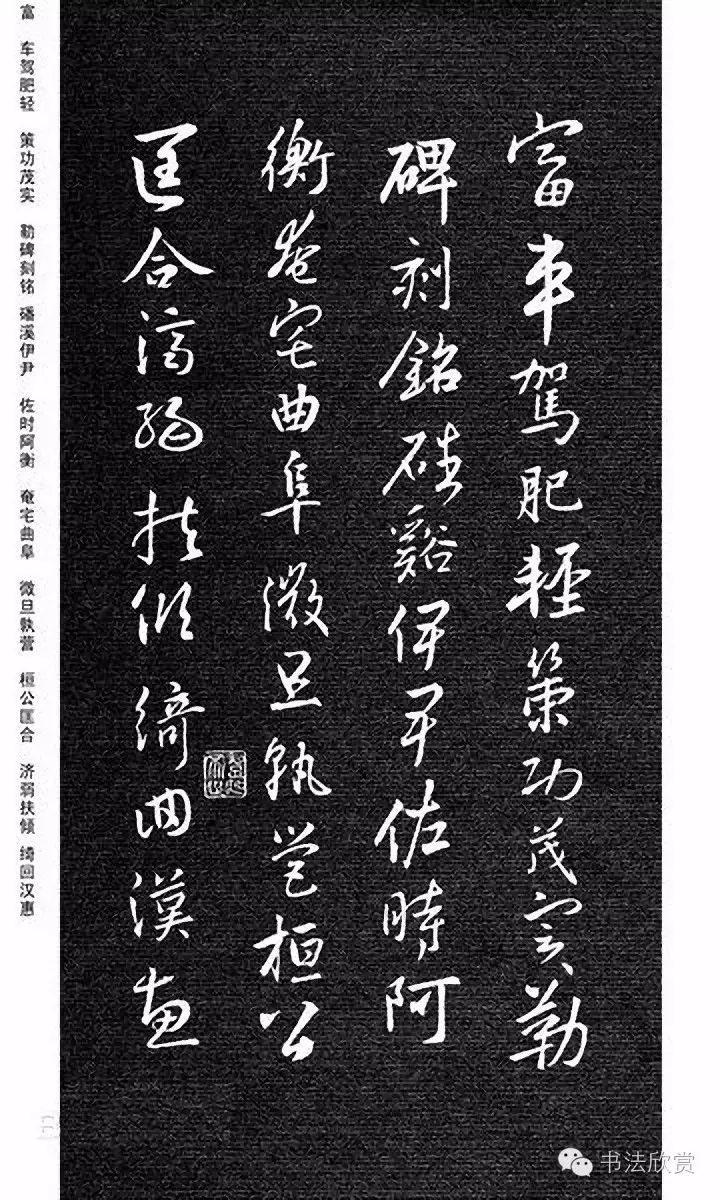 富車駕肥輕策功茂實勒
碑刻銘磻谿伊尹佐時阿
衡奄宅曲阜微旦孰營桓公
匡合濟弱扶傾綺回漢惠
富 车驾肥轻 策功茂实 勒碑刻铭 磻溪伊尹 佐时阿衡 奄宅曲阜 微旦孰营 桓公匡合 济弱扶倾 绮回汉惠
书法欣赏